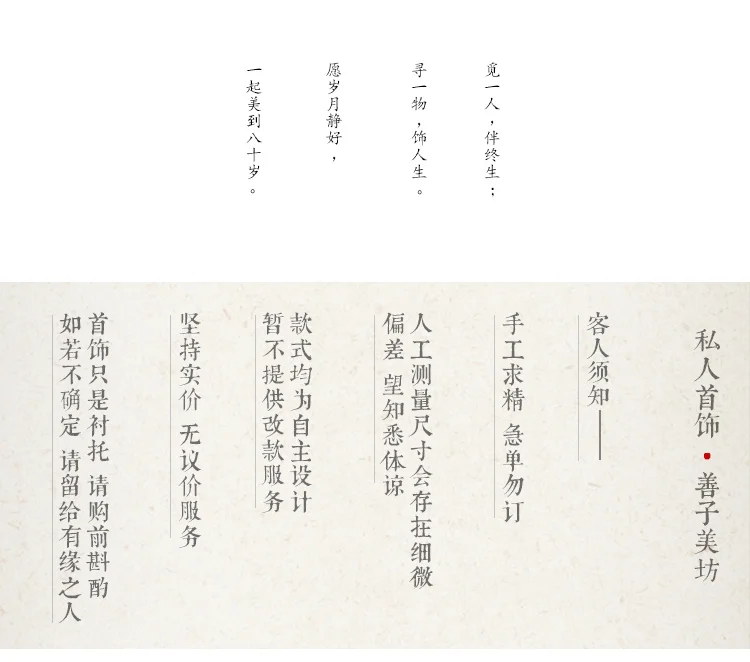 觅一人，伴终生；
寻一物，饰人生。
愿岁月静好，
一起美到八十岁。
私人首饰·善子美坊
客人须知——
手工求精 急单勿订
人工测量尺寸会存在细微
偏差 望知悉体谅
款式均为自主设计
暂不提供改款服务
坚持实价 无议价服务
首饰只是衬托 请购前斟酌
如若不确定 请留给有缘之人